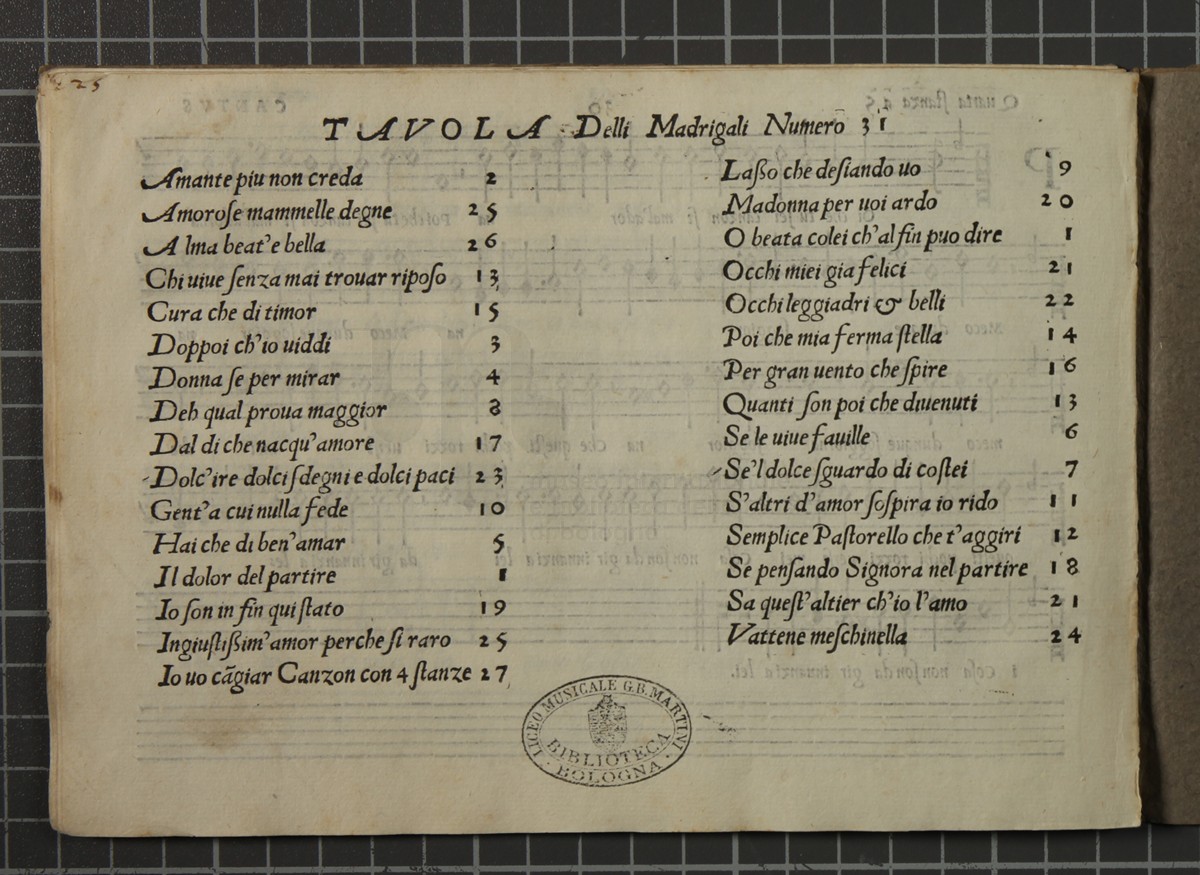 25
TAVOLA Delli Madrigali Numero 31
Amante piu non creda 2
Amorose mammelle degne 25
Alma beat'e bella 26
Chi uiue senza mai trouar riposo 13
Cura che di timor 15
Doppoi ch'io uiddi 3
Donna se per mirar 4
Deh qual proua maggior 8
Dal di che nacqu'amore 17
Dolc'ire dolci sdegni e dolci paci 23
Gent'a cui nulla fede 10
Hai che di ben'amar 5
Il dolor del partire 1
Io son in fin qui stato 19
Ingiustißim'amor perche si raro 25
Io uo cãgiar Canzon con 4 stanze 27
Laßo che desiando uo 9
Madonna per uoi ardo 20
O beata colei ch'al fin puo dire 1
Occhi miei gia felici 21
Occhi leggiadri & belli 22
Poi che mia ferma stella 14
Per gran uento che spire 16
Quanti son poi che diuenuti 13
Se le uiue fauille 6
Se'l dolce sguardo di costei 7
S'altri d'amor sospira io rido 11
Semplice Pastorello che t'aggiri 12
Se pensando Signora nel partire 18
Sa quest'altier ch'io l'amo 21
Vattene meschinella 24
LICEO MUSICALE G.B. MARTINI
BIBLIOTECA
BOLOGNA